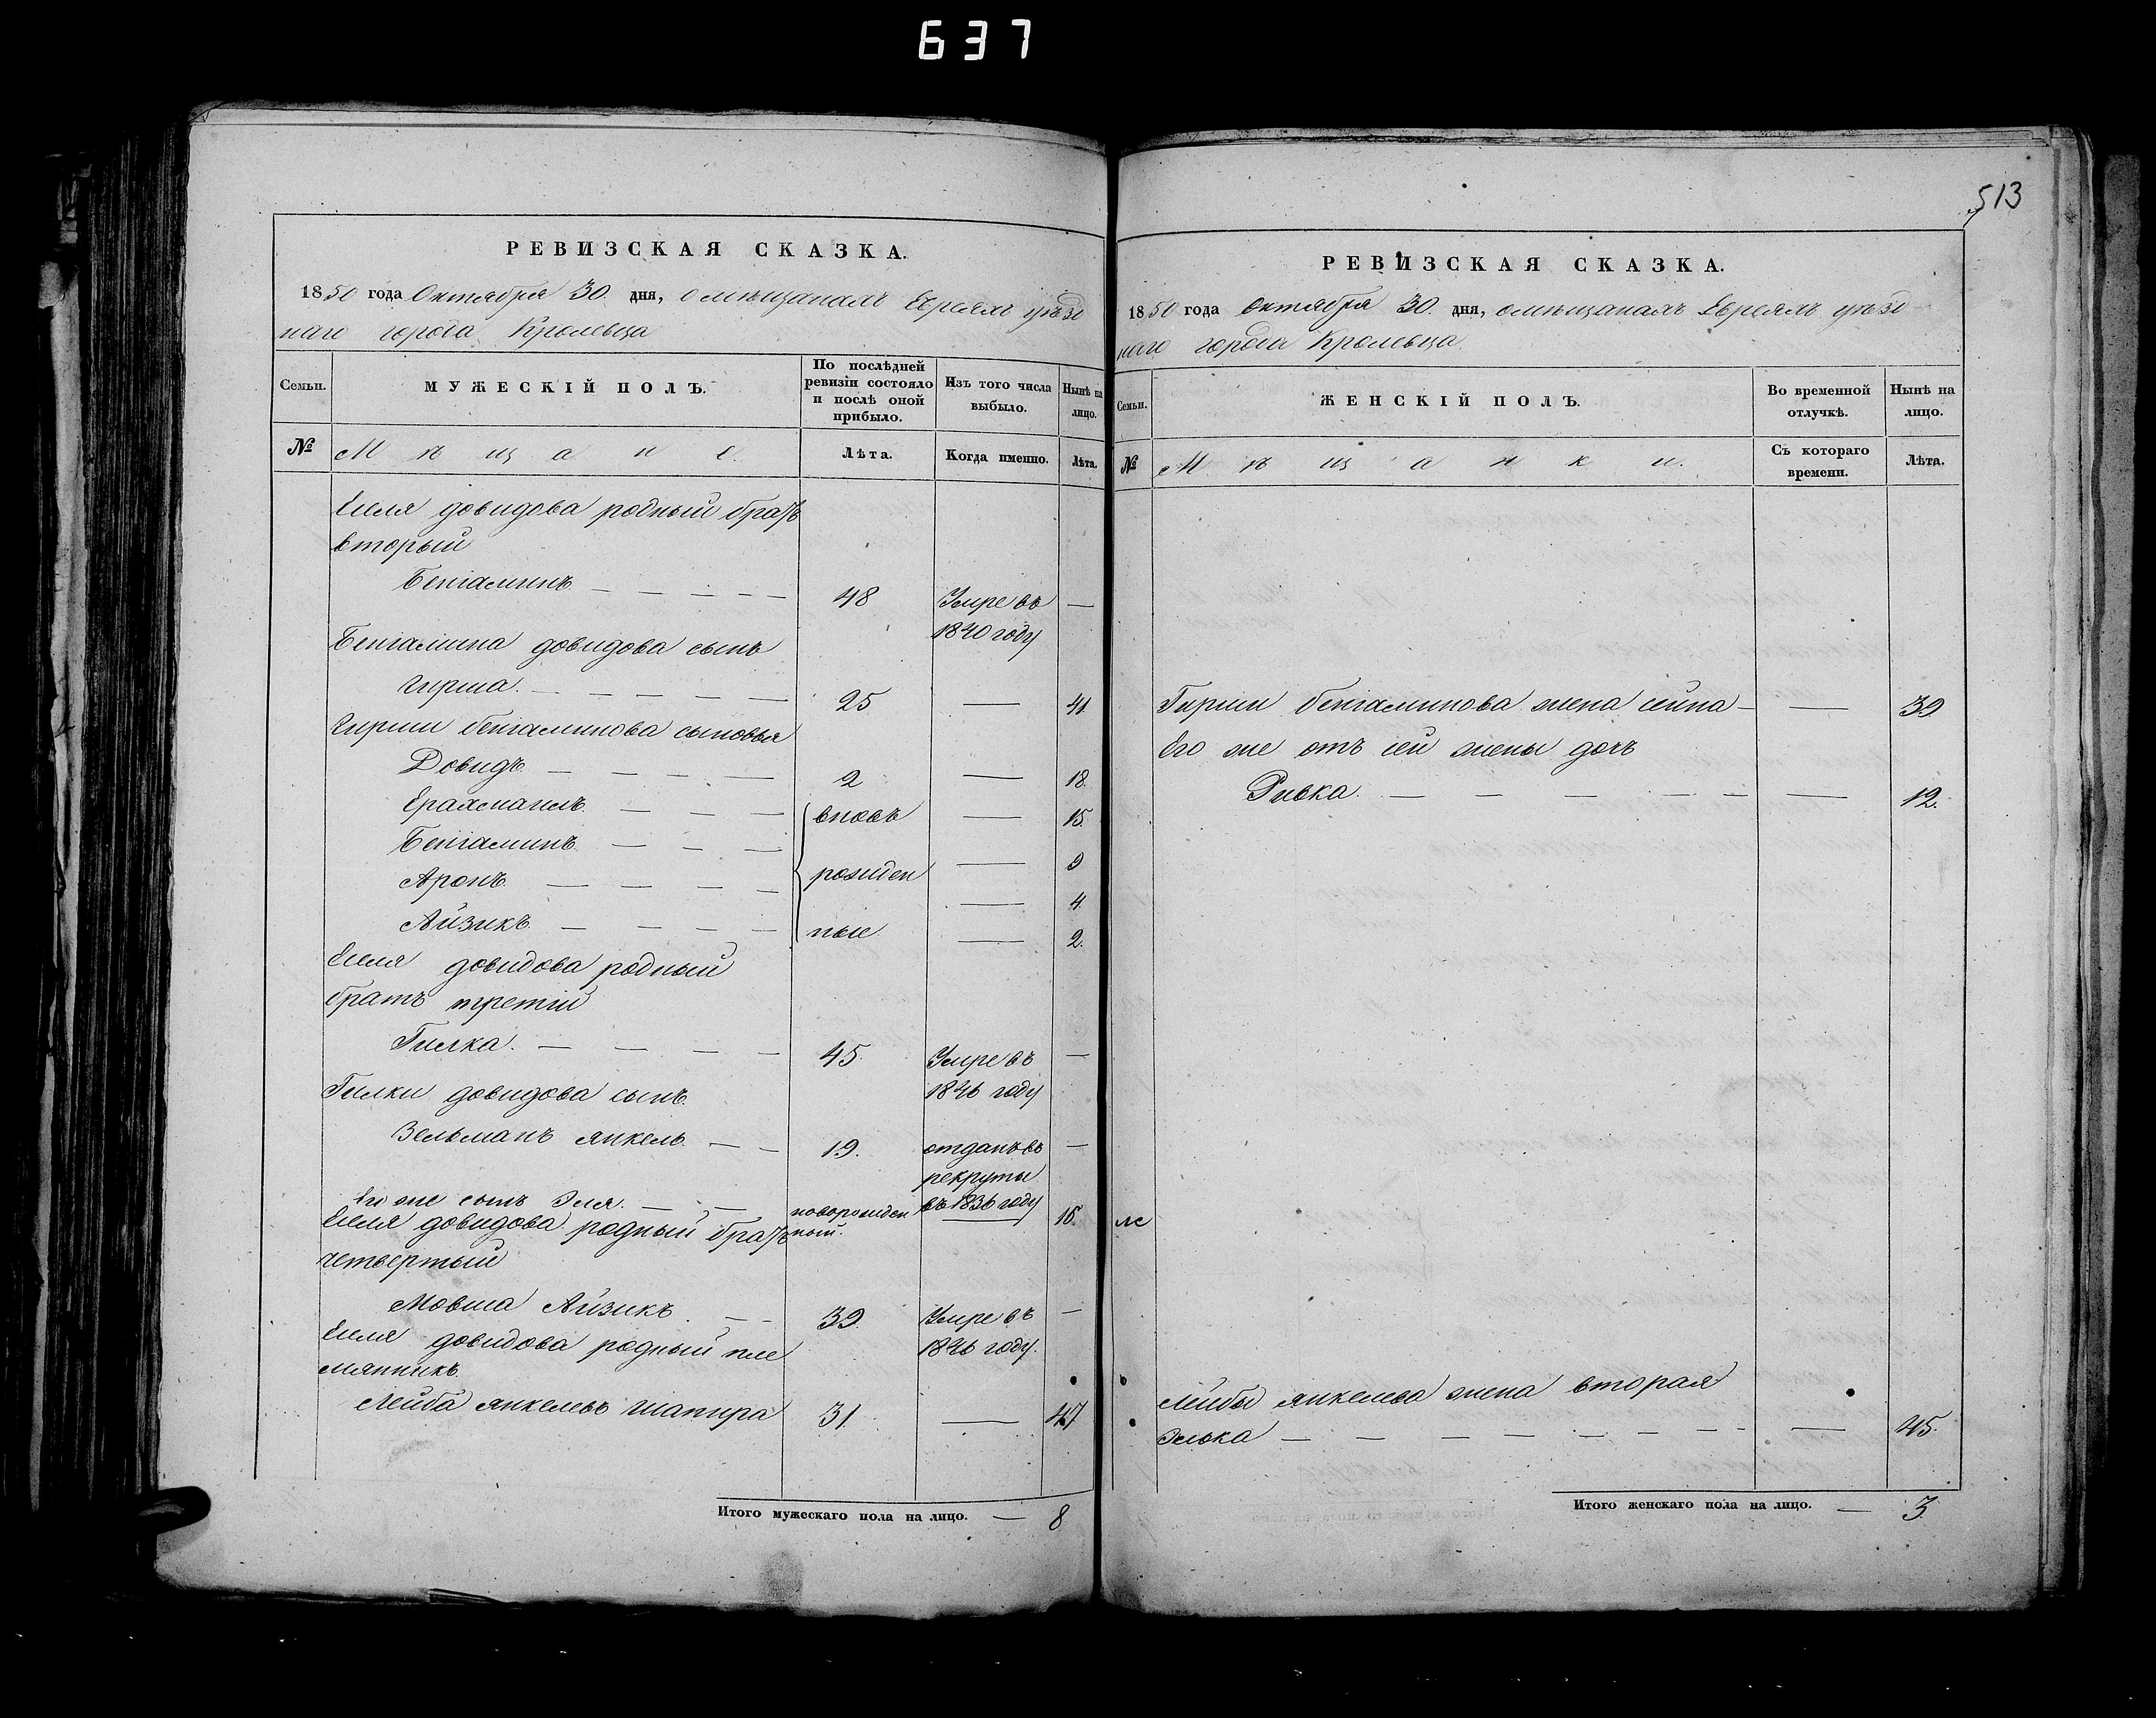 637
РЕВИЗСКАЯ СКАЗКА.
1850 года Октября 30. дня, о мѣщанахъ Евреяхъ уѣзд
наго города Кролевца
Семьи.
МУЖЕСКІЙ ПОЛЪ.
По послѣдней
ревизіи состояло
и послѣ оной
прибыло.
Изъ того числа
выбыло.
Нынѣ на
лицо.
№
Мѣщане.
Лѣта.
Когда именно.
Лѣта.
довидова родный братъ
вторый
Бенiаминъ 48 Умре въ —
1840 году
Бенiамина довидова сынъ
Гирша. 25 — 41.
Гирши бенiаминова сыновья
Довидъ 2 — 18.
вновь — 15.
Бенiаминъ — 9
Аронъ рожден — 4.
Айзикъ ные — 2.
довидова родный
братъ третiй
Гилка. 45. Умре въ —
1846 году
Гилки довидова сынъ.
Зельманъ янкель. 19. отданъ въ —
рекруты
въ 1836 году
Его же сынъ Эля. новорожден — 15.
ный.
довидова родный братъ
четвертый
Мовша Айзикъ 39. Умре въ —
1846 году.
довидова родный пле
мянникъ.
Лейба янкелевъ шапира 31. — 47
Итого мужескаго пола на лицо. — 8
513
РЕВИЗСКАЯ СКАЗКА.
1850 года Октября 30. дня, о мѣщанахъ Евреяхъ уѣзд
наго города Кролевца.
Семьи.
ЖЕНСКІЙ ПОЛЪ.
Во временной
отлучкѣ.
Нынѣ на
лицо.
№
Мѣщанки.
Съ котораго
времени.
Лѣта.
Гирши бенiаминова жена сейна — — 39
Его же отъ сей жены дочь
Ривка. — 12.
Лейбы янкелева жена вторая
Элька — 45.
Итого женскаго пола на лицо. — 3.